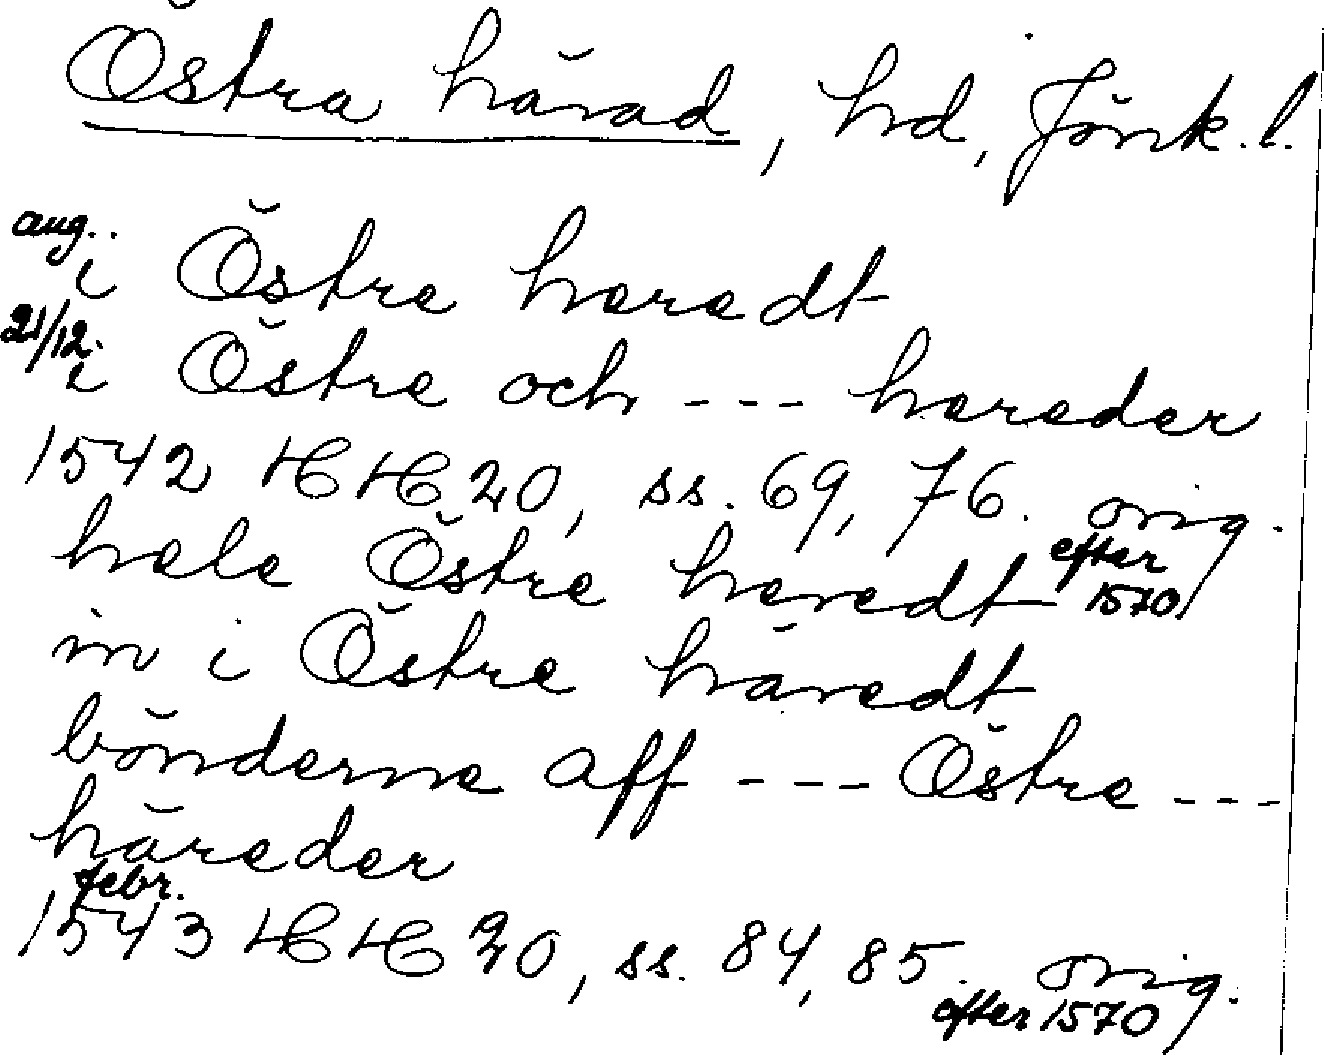 Östra härad, hd, Jönk.l.
aug.
i Östre heredt
21/12.
i Östre och --- hereder
1542 HH 20, ss. 69, 76. orig.
efter
hele Östre heredt 1570
in i Östre häredt
bönderne aff --- Östre ---
häreder
febr.
1543 HH 20, ss. 84, 85. orig.
efter 1570